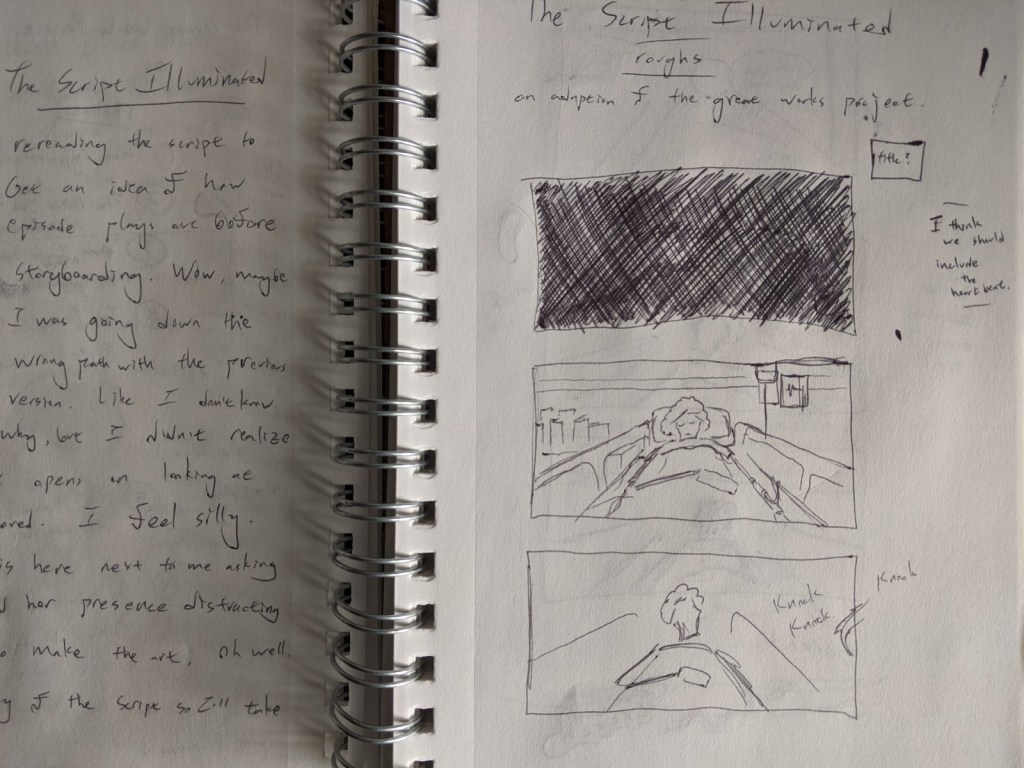 The Script Illuminated
rereading the script to
Get an idea of how
episode plays out before
storyboarding. Wow, maybe
I was going down the
wrong path with the previous
version. Like I don't know
why, but I didn't realize
opens on looking at
I feel silly.
is here next to me asking
her presence distracting
make the art, oh well.
of the script so I'll take
The Script Illuminated
roughs
an adaption of the great works project.
title?
I think
we should
include
the
heart beat.
Knock
Knock
Knock